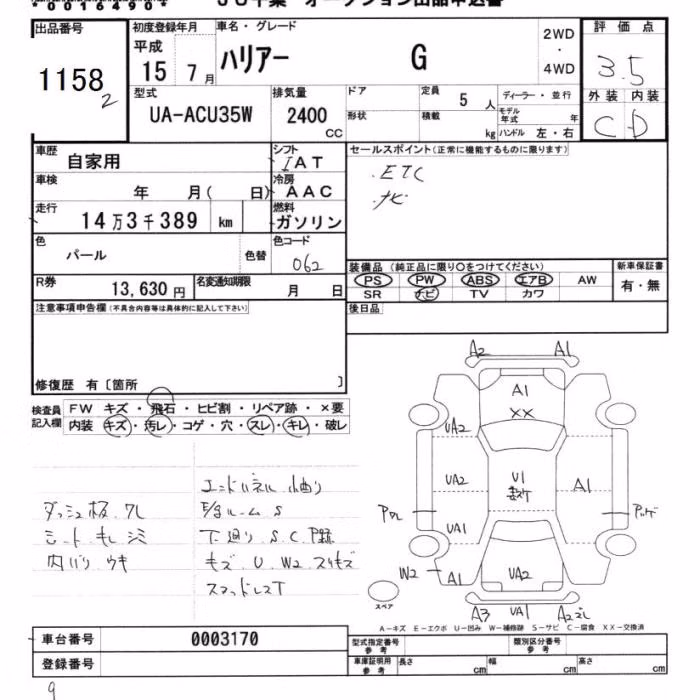 00164904
出品番号 初度登録年月 車名・グレード 2WD 評価点
1158 平成 ハリアー G ・ 3.5
2 15 7月 4WD 外装 内装
型式 排気量 ドア 定員 5人 ディーラー・並行 C D
UA-ACU35W 2400 CC 形状 積載 kg モデル年式 年
ハンドル 左・右
車歴 自家用 シフト IAT セールスポイント(正常に機能するものに限ります)
車検 年 月( 日) 冷房 AAC ・ETC
走行 14万3千389 km 燃料 ガソリン ・ナビ
色 パール 色替 色コード 062
装備品 (純正品に限り○をつけてください) 新車保証書
R券 13,630円 名変通知期限 月 日 PS PW ABS エアB AW 有・無
SR ナビ TV カワ
注意事項申告欄(不具合内容等は具体的に記入して下さい) 後日品
修復歴 有〔箇所 〕
検査員記入欄 FW キズ・飛石・ヒビ割・リペア跡・×要
内装 キズ・汚レ・コゲ・穴・スレ・キレ・破レ
エンドパネル 小曲り
S
ダッシュ板 ワレ
シート キレ シミ 下廻り S.C
内バリ ウキ キズ U W2
A2 A1
A1
XX
UA2
UA2 U1 A1
UA1
W2 A1 UA2
A3 UA1 A2
スペア
A−キズ E−エクボ U−凹み W−補修跡 S−サビ C−腐食 XX−交換済
車台番号 0003170 型式指定番号 参考 類別区分番号 参考
登録番号 車庫証明用 参考 長さ cm 幅 cm 高さ cm
9